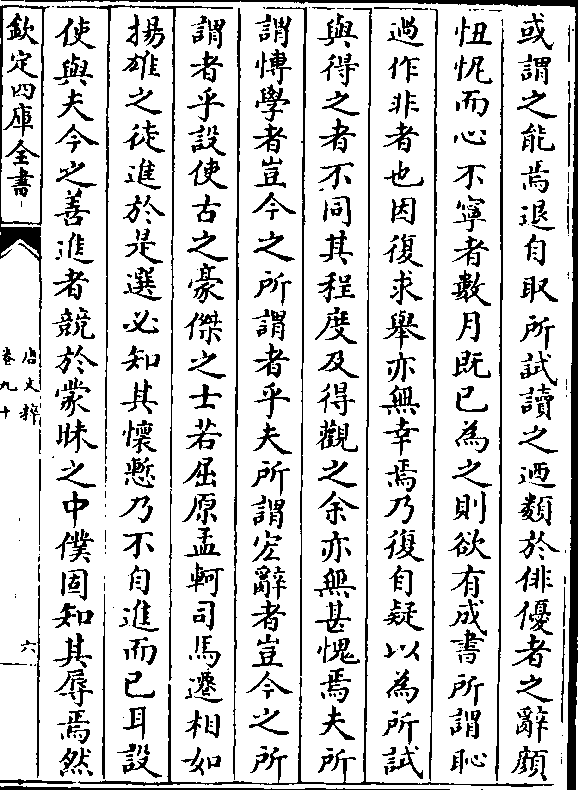 或謂之能焉退自取所試讀之迺類於俳優者之辭顔
忸怩而心不寧者數月既已為之則欲有成書所謂恥
過作非者也因復求舉亦無幸焉乃復自疑以為所試
與得之者不同其程度及得觀之余亦無甚愧焉夫所
謂愽學者豈今之所謂者乎夫所謂宏辭者豈今之所
謂者乎設使古之豪傑之士若屈原孟軻司馬遷相如
揚雄之徒進於是選必知其懷慙乃不自進而已耳設
使與夫今之善進者競於蒙昧之中僕固知其辱焉然
欽定四庫全書
唐文粹
卷九十
六